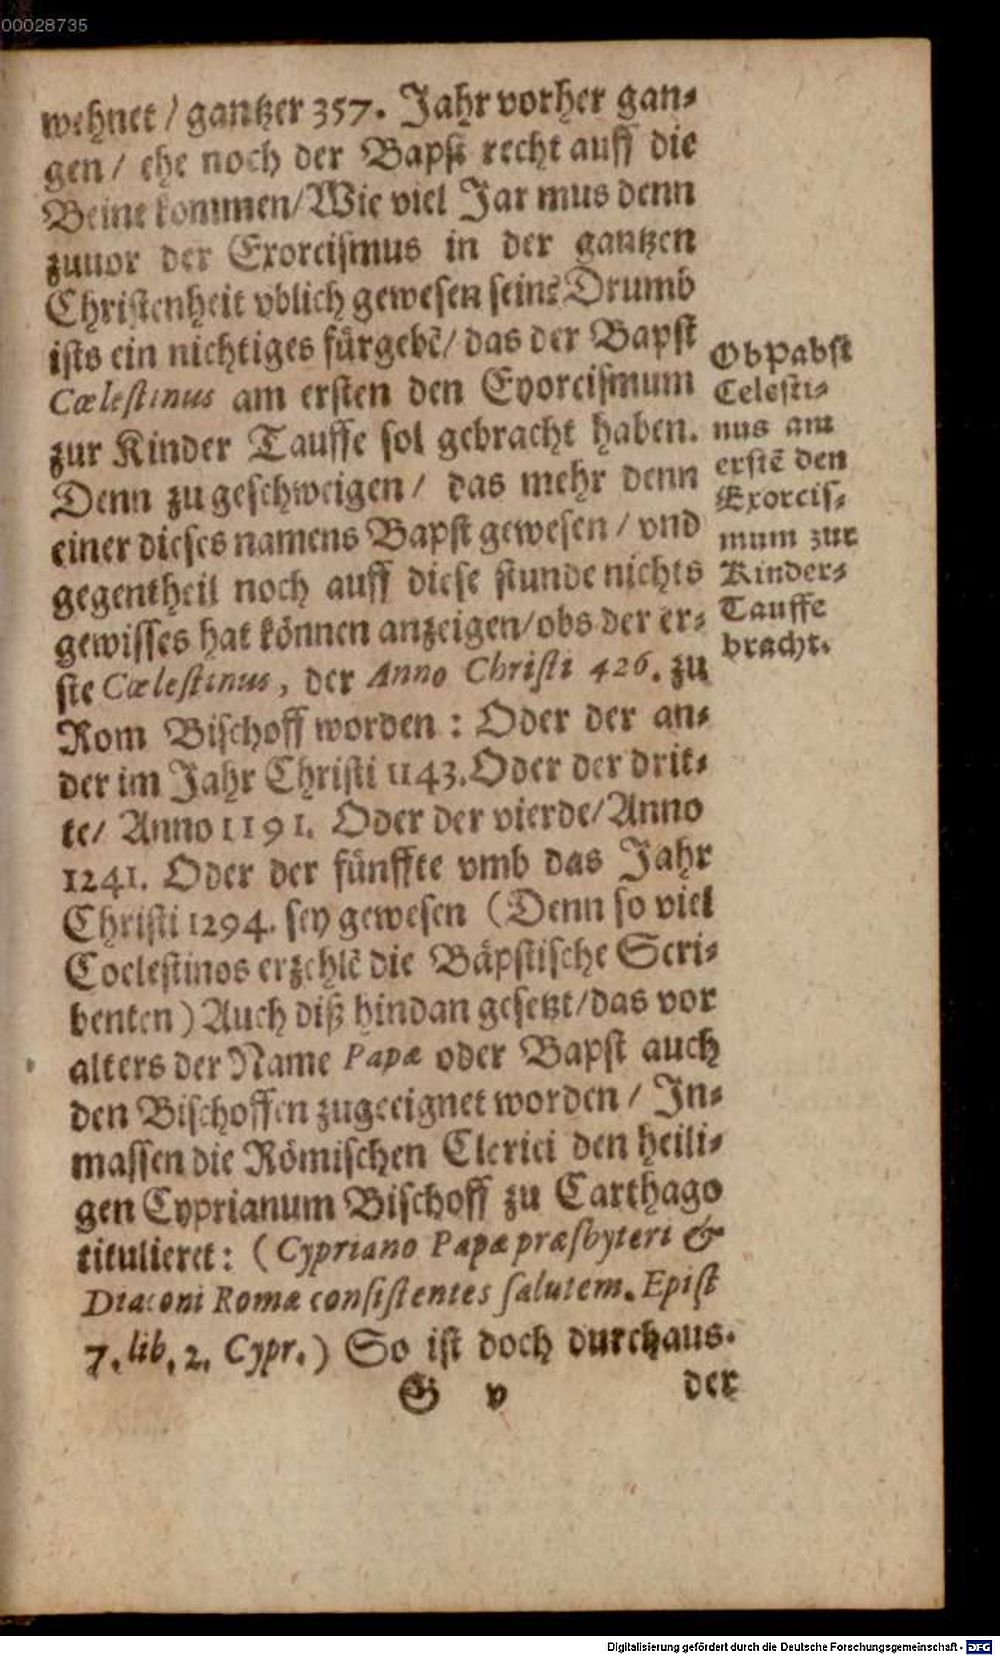 00028735
wehnet / gantzer 357. Jahr vorher gan-
gen / ehe noch der Bapst recht auff die
Beine kommen/Wie viel Jar mus denn
zuuor der Exorcismus in der gantzen
Christenheit vblich gewesen sein? Drumb
ists ein nichtiges fürgebē/ das der Bapst
Cœlestinus am ersten den Exorcismum
zur Kinder Tauffe sol gebracht haben.
Denn zu geschweigen / das mehr denn
einer dieses namens Bapst gewesen / vnd
gegentheil noch auff diese stunde nichts
gewisses hat können anzeigen/obs der er-
ste Cœlestinus, der Anno Christi 426. zu
Rom Bischoff worden : Oder der an-
der im Jahr Christi 1143. Oder der drit-
te/ Anno 1191. Oder der vierde/Anno
1241. Oder der fünffte vmb das Jahr
Christi 1294. sey gewesen (Denn so viel
Coelestinos erzehlē die Bäpstische Scri-
benten) Auch diß hindan gesetzt/das vor
alters der Name Papæ oder Bapst auch
den Bischoffen zugeeignet worden / In-
massen die Römischen Clerici den heili-
gen Cyprianum Bischoff zu Carthago
titulieret: (Cypriano Papæ præsbyteri &
Diaconi Romæ consistentes salutem. Epist
7. lib. 2. Cypr.) So ist doch durchaus.
G v der
Ob Pabst
Celesti-
nus am
erstē den
Exorcis-
mum zur
Kinder-
Tauffe
bracht.
Digitalisierung gefördert durch die Deutsche Forschungsgemeinschaft - DFG